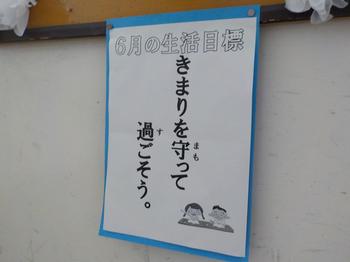 6月の生活目標
きまりを守って
過ごそう。